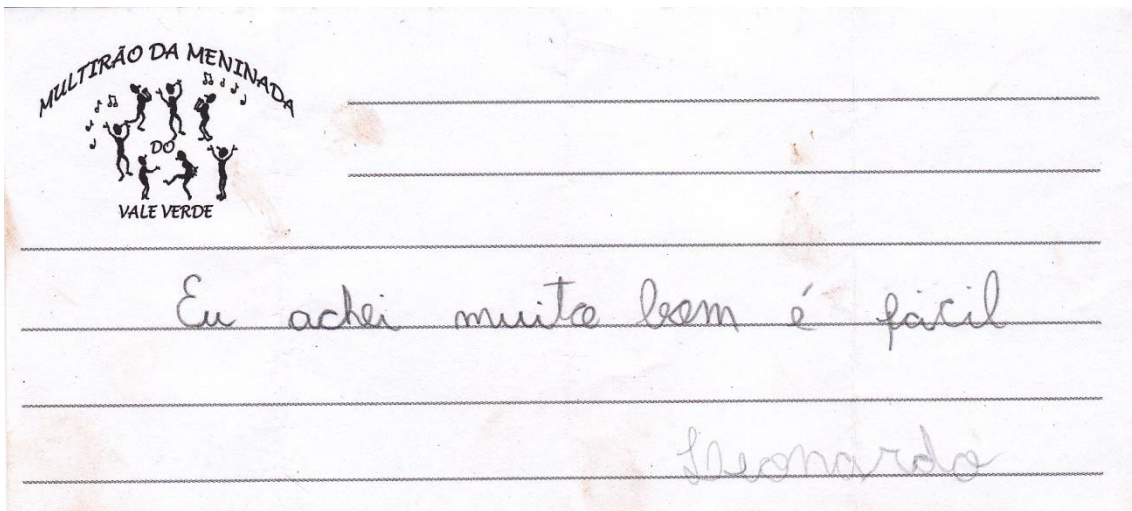 MULTIRÃO DA MENINADA
DO
VALE VERDE
Eu achei muito bom é fácil
Leonardo